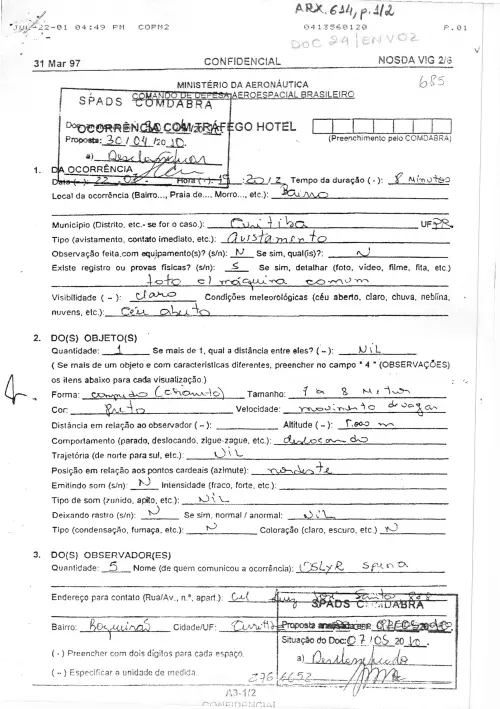 ARX. 614, p. 1/2
JUL-22-01 04:49 PM COPM2 0413560120 P.01
DOC 29/ENVOZ
31 Mar 97 CONFIDENCIAL NOSDA VIG 2/6
685
MINISTÉRIO DA AERONÁUTICA
COMANDO DE DEFESA AEROESPACIAL BRASILEIRO
SPADS COMDABRA
OCORRÊNCIA COM TRÁFEGO HOTEL
Proposta: 30/04/2010 (Preenchimento pelo COMDABRA)
a) Desclassificar
1. DA OCORRÊNCIA
Data (-): Hora (-): 20/Z Tempo da duração (-): 8 Minutos
Local da ocorrência (Bairro..., Praia de..., Morro..., etc.): Bairro
Município (Distrito, etc.- se for o caso.): Curitiba UF PR
Tipo (avistamento, contato imediato, etc.): Avistamento
Observação feita com equipamento(s)? (s/n): N Se sim, qual(is)?: N
Existe registro ou provas físicas? (s/n): S Se sim, detalhar (foto, vídeo, filme, fita, etc.)
foto c/ máquina comum
Visibilidade ( ~ ): claro Condições meteorológicas (céu aberto, claro, chuva, neblina,
nuvens, etc.): Céu aberto
2. DO(S) OBJETO(S)
Quantidade: 1 Se mais de 1, qual a distância entre eles? ( ~ ): NIL
( Se mais de um objeto e com características diferentes, preencher no campo " 4 " (OBSERVAÇÕES)
os itens abaixo para cada visualização.)
Forma: comprido (charuto) Tamanho: 7 a 8 Metros
Cor: Preto Velocidade: movimento devagar
Distância em relação ao observador ( ~ ): Altitude ( ~ ): 1.000 m
Comportamento (parado, deslocando, zigue-zague, etc.): deslocando
Trajetória (de norte para sul, etc.): Nil
Posição em relação aos pontos cardeais (azimute): nordeste
Emitindo som (s/n): N Intensidade (fraco, forte, etc.):
Tipo de som (zunido, apito, etc.): NIL
Deixando rastro (s/n): N Se sim, normal / anormal: NIL
Tipo (condensação, fumaça, etc.): N Coloração (claro, escuro, etc.) N
3. DO(S) OBSERVADOR(ES)
Quantidade: 5 Nome (de quem comunicou a ocorrência): OSLYR Spina
Endereço para contato (Rua/Av., n.º, apart.): Cel Santos
SPADS COMDABRA
Bairro: Boqueirão Cidade/UF: Curitiba Proposta
( - ) Preencher com dois dígitos para cada espaço. Situação do Doc: 07/05/2010
( ~ ) Especificar a unidade de medida. a) Desclassificado
276 6652
A3-1/2
CONFIDENCIAL